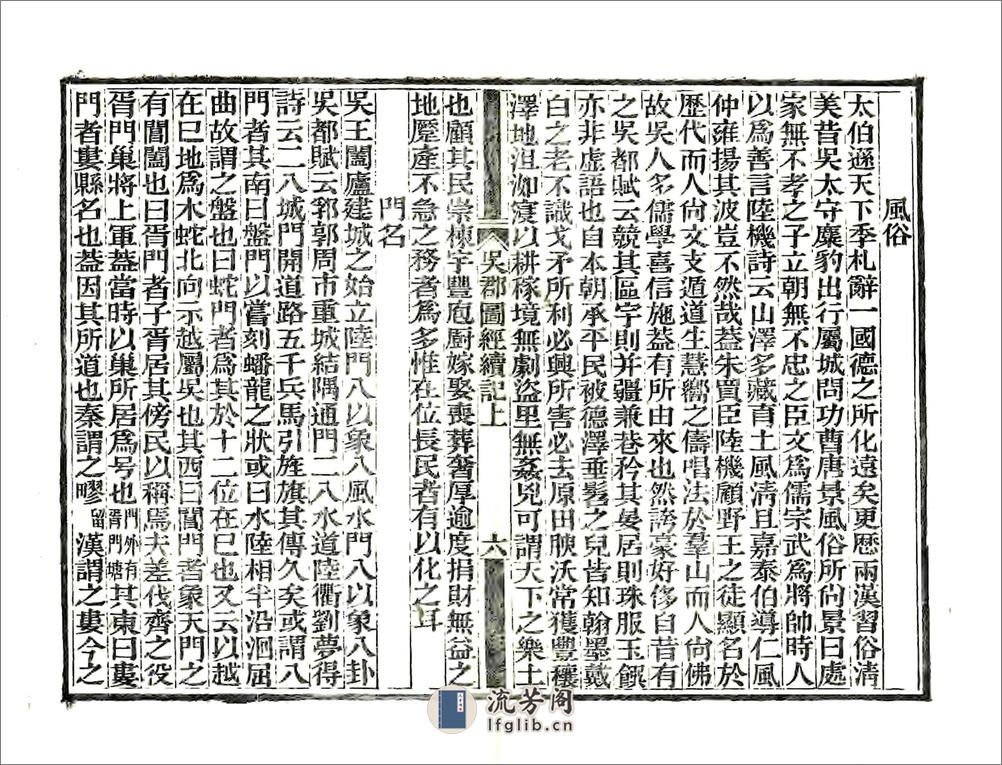 風俗
太伯遜天下季札辭一國德之所化遠矣更歷兩漢習俗清
美昔吳太守麋豹出行屬城問功曹唐景風俗所尙景曰處
家無不孝之子立朝無不忠之臣文爲儒宗武爲將帥時人
以爲善言陸機詩云山澤多藏育土風淸且嘉泰伯導仁風
仲雍揚其波豈不然哉蓋朱買臣陸機顧野王之徒顯名於
歷代而人尙文支遁道生慧嚮之儔唱法於羣山而人尙佛
故吳人多儒學喜信施蓋有所由來也然誇豪好侈自昔有
之吳都賦云競其區宇則并疆兼巷矜其晏居則珠服玉饌
亦非虛語也自本朝承平民被德澤垂髫之兒皆知翰墨戴
白之老不識戈矛所利必興所害必去原田腴沃常獲豐穰
澤地沮洳寖以耕稼境無劇盜里無姦兇可謂天下之樂土
吳郡圖經續記上 六
也顧其民崇棟宇豐庖廚嫁娶喪葬奢厚逾度捐財無益之
地蹷產不急之務者爲多惟在位長民者有以化之耳
門名
吳王闔廬建城之始立陸門八以象八風水門八以象八卦
吳都賦云郛郭周市重城結隅通門二八水道陸衢劉夢得
詩云二八城門開道路五千兵馬引旌旗其傳久矣或謂八
門者其南曰盤門以嘗刻蟠龍之狀或曰水陸相半沿洄屈
曲故謂之盤也曰蛇門者爲其於十二位在巳也又云以越
在巳地爲木蛇北向示越屬吳也其西曰閶門者象天門之
有閶闔也曰胥門者子胥居其傍民以稱焉夫差伐齊之役
胥門巢將上軍蓋當時以巢所居爲号也門外有胥門塘其東曰婁
門者婁縣名也蓋因其所道也秦謂之疁留漢謂之婁今之
流芳阁
lfglib.cn